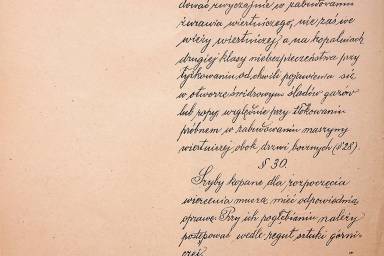 dować zwyczajnie w zabudowaniu
żurawia wiertniczego, nie zaś we
wieży wiertniczej, a na kopalniach
drugiej klasy niebezpieczeństwa przy
tłokowaniu od chwili pojawienia się
w otworze świdrowym śladów gazów
lub ropy, względnie przy tłokowaniu
próbnem w zabudowaniu maszyny
wiertniczej obok drzwi bocznych (§ 28).
§ 30.
Szyby kopane dla rozpoczęcia
wiercenia muszą mieć odpowiednią
oprawę. Przy ich pogłębianiu należy
postępować wedle reguł sztuki górni-
czej.